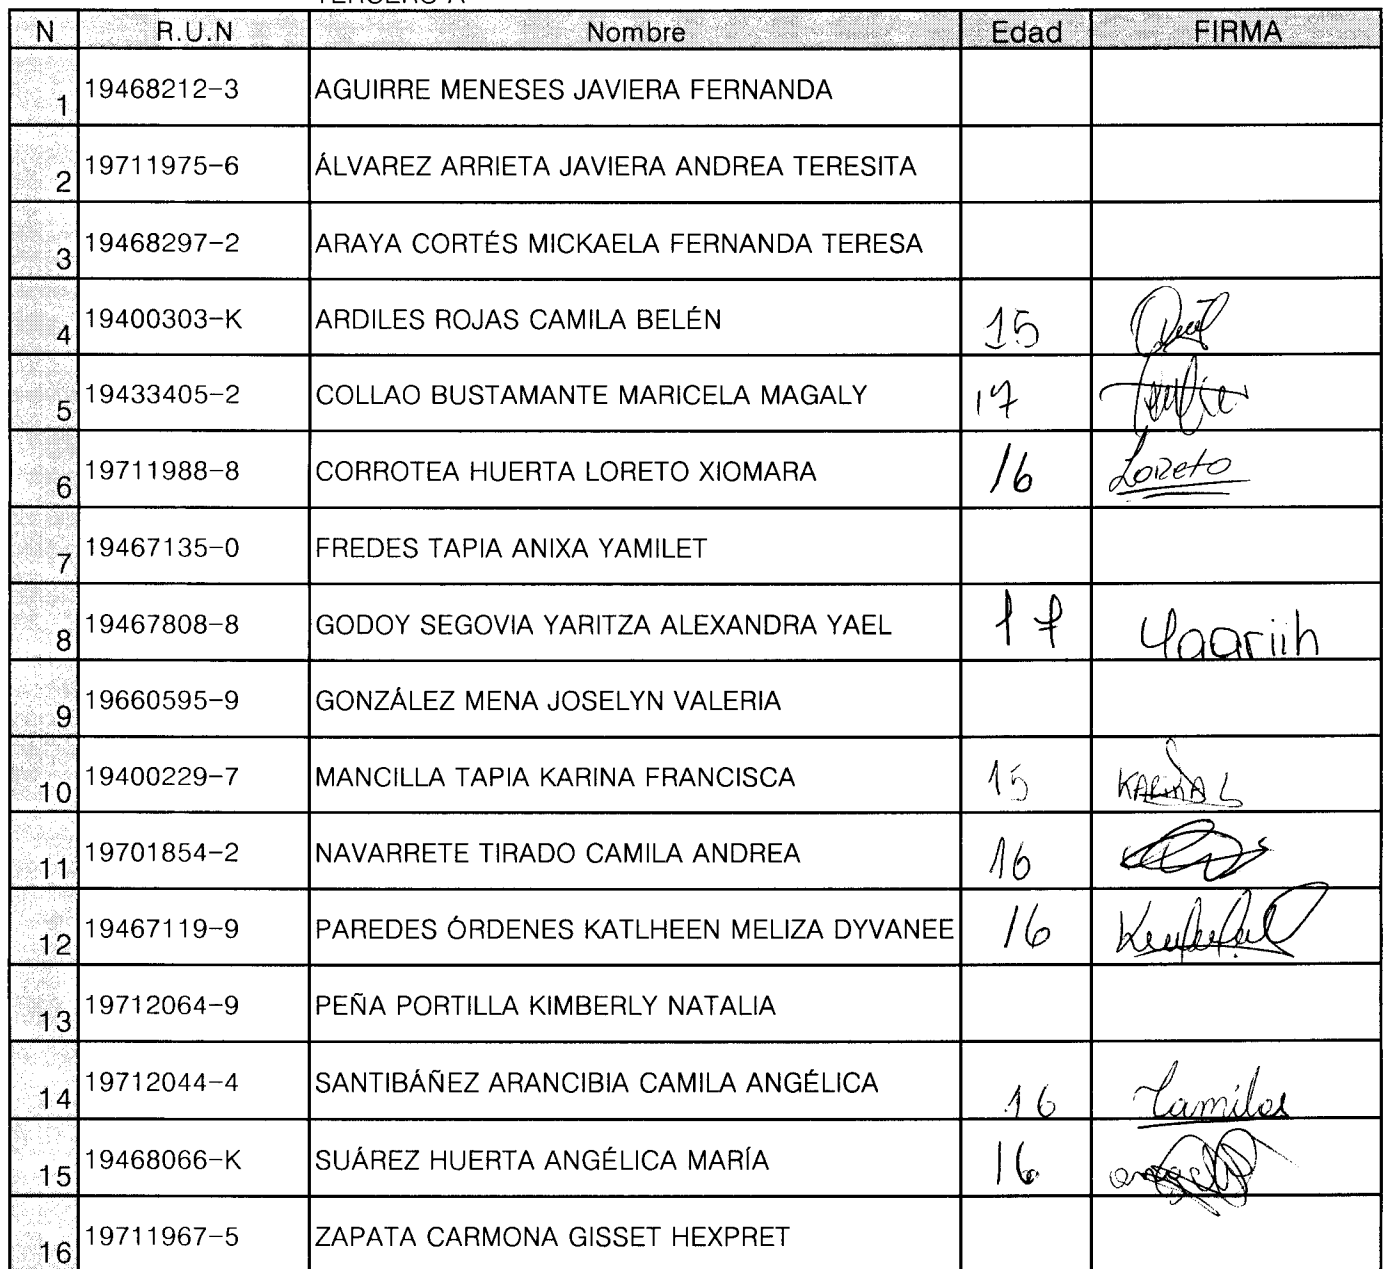 TERCERO A
N R.U.N Nombre Edad FIRMA
1 19468212-3 AGUIRRE MENESES JAVIERA FERNANDA
2 19711975-6 ÁLVAREZ ARRIETA JAVIERA ANDREA TERESITA
3 19468297-2 ARAYA CORTÉS MICKAELA FERNANDA TERESA
4 19400303-K ARDILES ROJAS CAMILA BELÉN 15
5 19433405-2 COLLAO BUSTAMANTE MARICELA MAGALY 17
6 19711988-8 CORROTEA HUERTA LORETO XIOMARA 16 Loreto
7 19467135-0 FREDES TAPIA ANIXA YAMILET
8 19467808-8 GODOY SEGOVIA YARITZA ALEXANDRA YAEL 17 Yaariih
9 19660595-9 GONZÁLEZ MENA JOSELYN VALERIA
10 19400229-7 MANCILLA TAPIA KARINA FRANCISCA 15 KARINA
11 19701854-2 NAVARRETE TIRADO CAMILA ANDREA 16
12 19467119-9 PAREDES ÓRDENES KATLHEEN MELIZA DYVANEE 16
13 19712064-9 PEÑA PORTILLA KIMBERLY NATALIA
14 19712044-4 SANTIBÁÑEZ ARANCIBIA CAMILA ANGÉLICA 16 Camila
15 19468066-K SUÁREZ HUERTA ANGÉLICA MARÍA 16
16 19711967-5 ZAPATA CARMONA GISSET HEXPRET